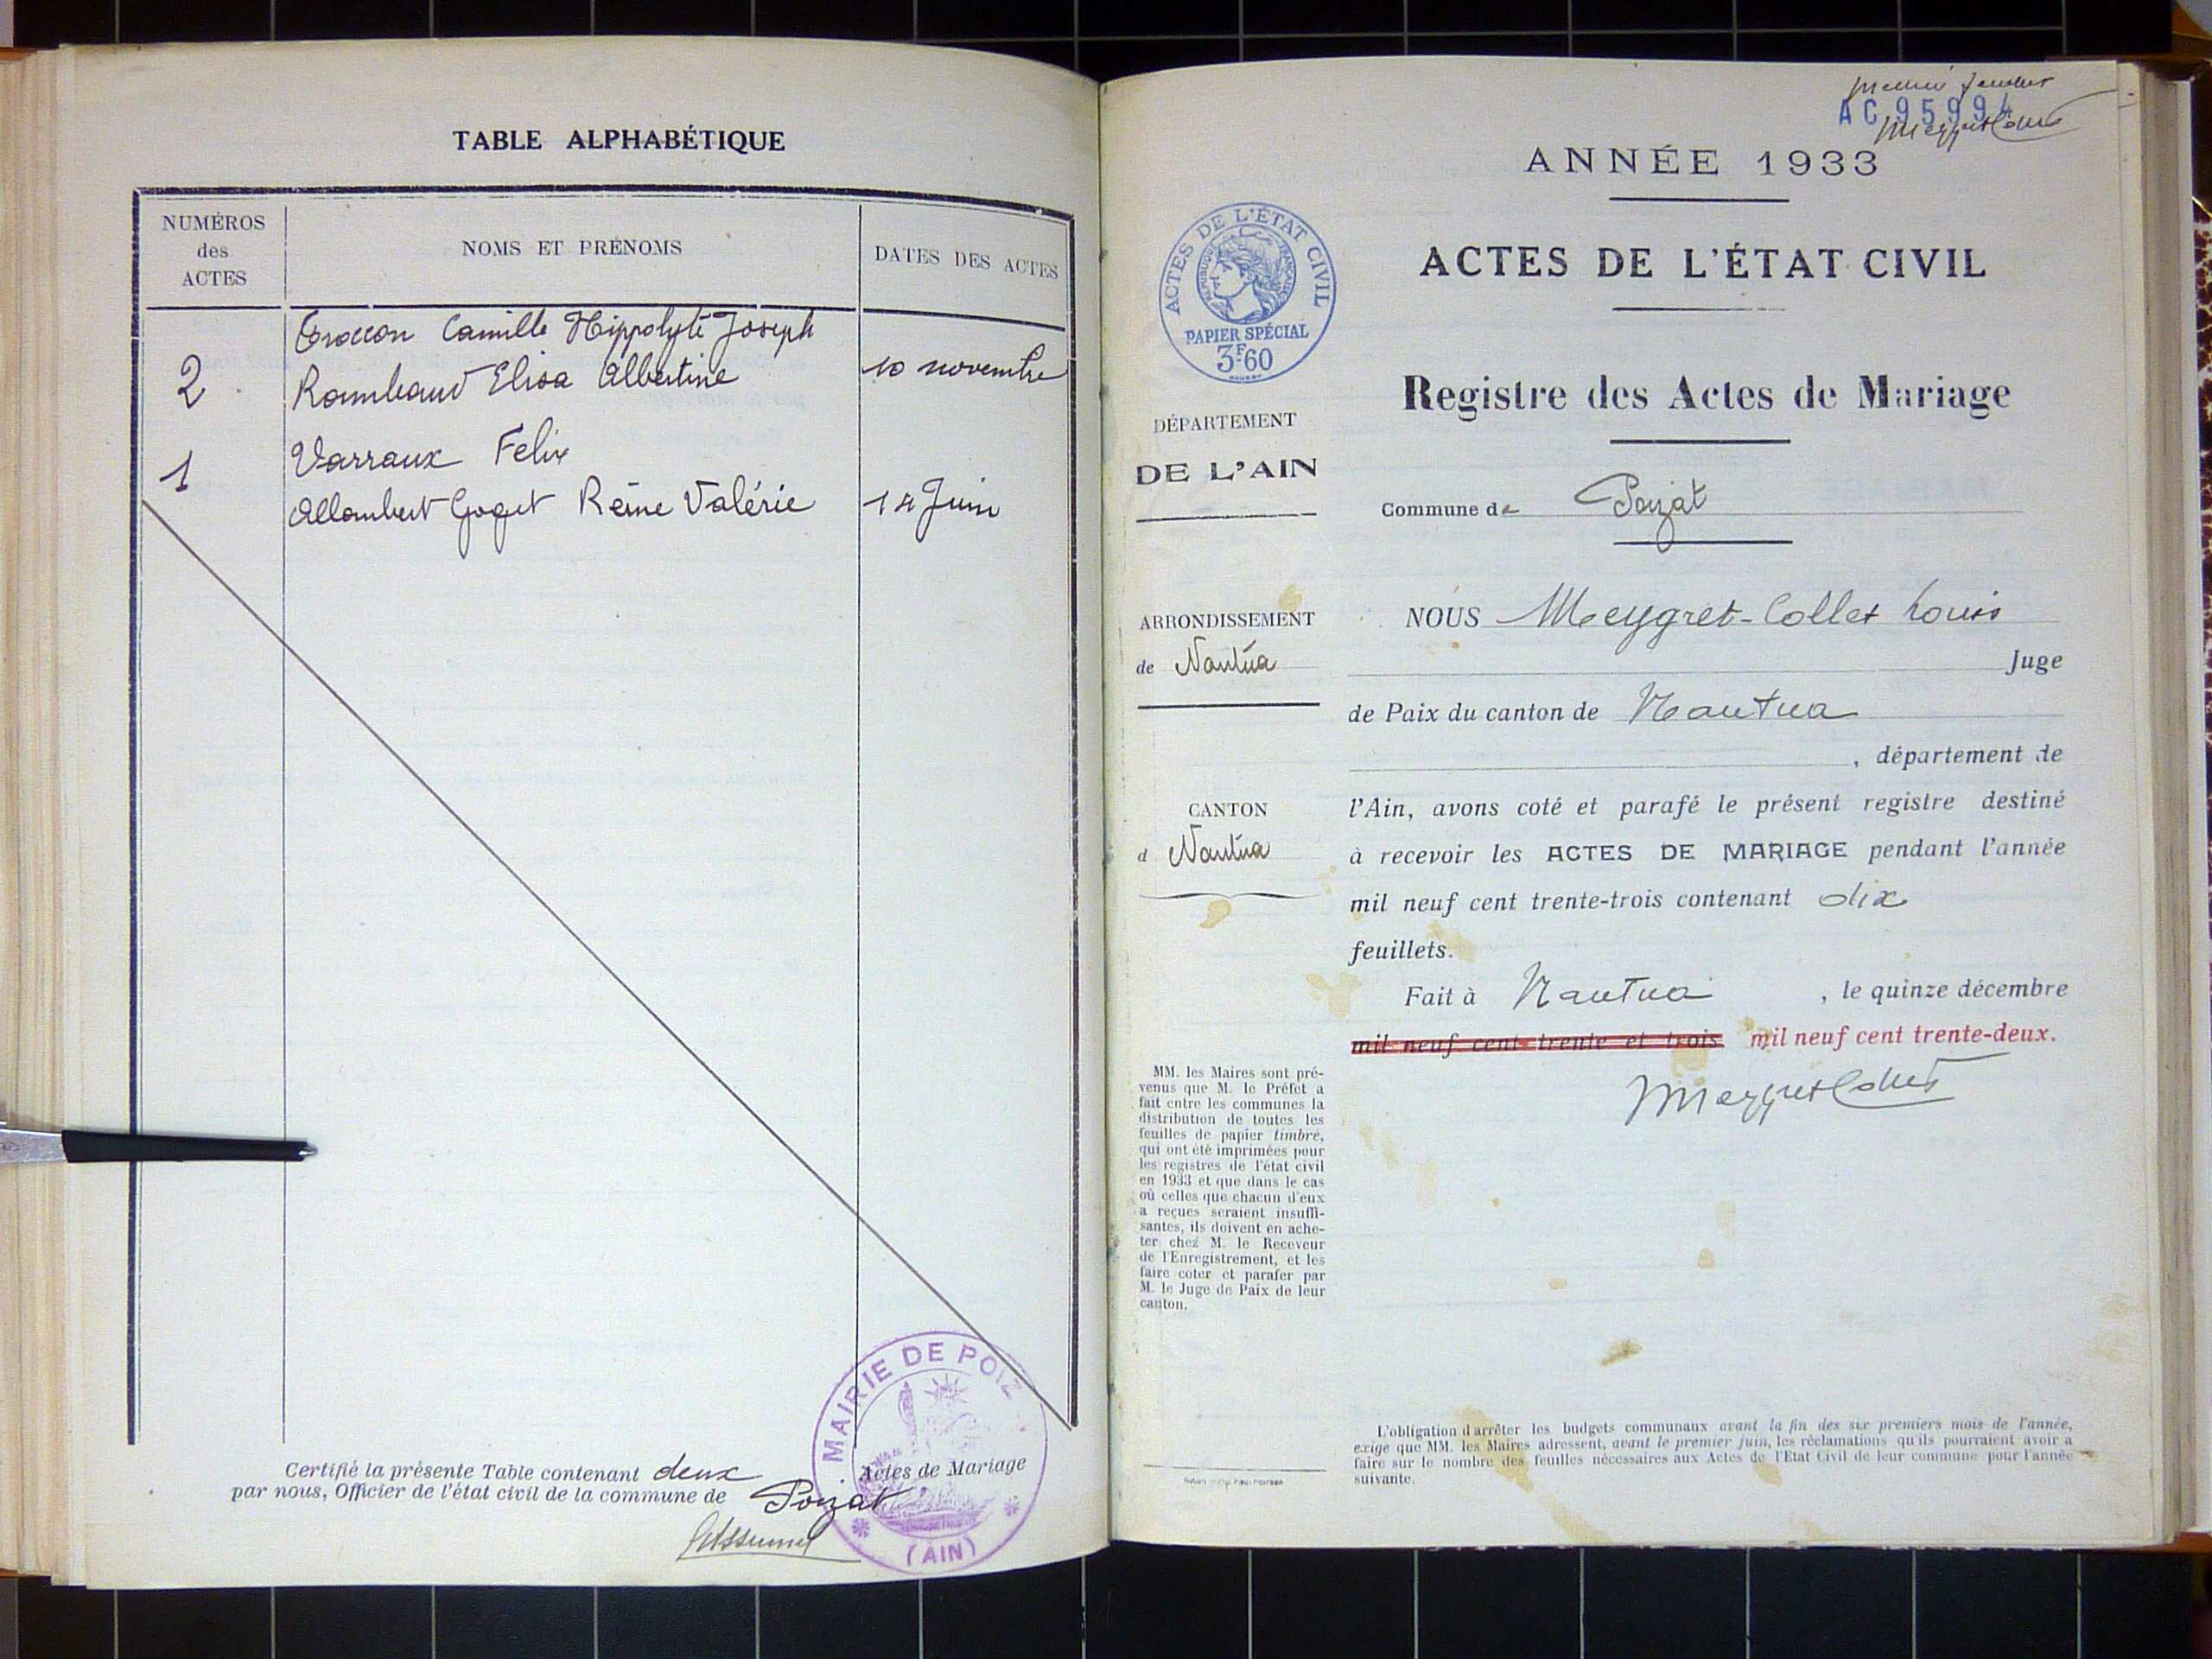 TABLE ALPHABÉTIQUE
NUMÉROS
des
ACTES
NOMS ET PRÉNOMS
DATES DES ACTES
Camille Hippolyte Joseph
2 Rambaud Elisa Albertine 10 novembre
Varraux Felix
1
Allombert Goget Reine Valérie 14 Juin
Certifié la présente Table contenant deux Actes de Mariage
par nous, Officier de l'état civil de la commune de Poizat
MAIRIE DE POIZ
(AIN)
premier feuillet
AC 9599
Meygret Collet
ANNÉE 1933
ACTES DE L'ÉTAT CIVIL
RÉPUBLIQUE FRANÇAISE
PAPIER SPÉCIAL
3F60
ACTES DE L'ÉTAT CIVIL
Registre des Actes de Mariage
DÉPARTEMENT
DE L'AIN
Commune de Poizat
ARRONDISSEMENT
de Nantua
CANTON
d Nantua
NOUS Meygret-Collet Louis
Juge
de Paix du canton de Nantua
, département de
l'Ain, avons coté et parafé le présent registre destiné
à recevoir les ACTES DE MARIAGE pendant l'année
mil neuf cent trente-trois contenant dix
feuillets.
Fait à Nantua , le quinze décembre
mil neuf cent trente et trois mil neuf cent trente-deux.
Meygret Collet
MM. les Maires sont pré-
venus que M. le Préfet a
fait entre les communes la
distribution de toutes les
feuilles de papier timbré,
qui ont été imprimées pour
les registres de l'état civil
en 1933 et que dans le cas
où celles que chacun d'eux
a reçues seraient insuffi-
santes, ils doivent en ache-
ter chez M. le Receveur
de l'Enregistrement, et les
faire coter et parafer par
M. le Juge de Paix de leur
canton.
L'obligation d'arrêter les budgets communaux avant la fin des six premiers mois de l'année,
exige que MM. les Maires adressent, avant le premier juin, les réclamations qu'ils pourraient avoir a
faire sur le nombre des feuilles nécessaires aux Actes de l'Etat Civil de leur commune pour l'année
suivante.